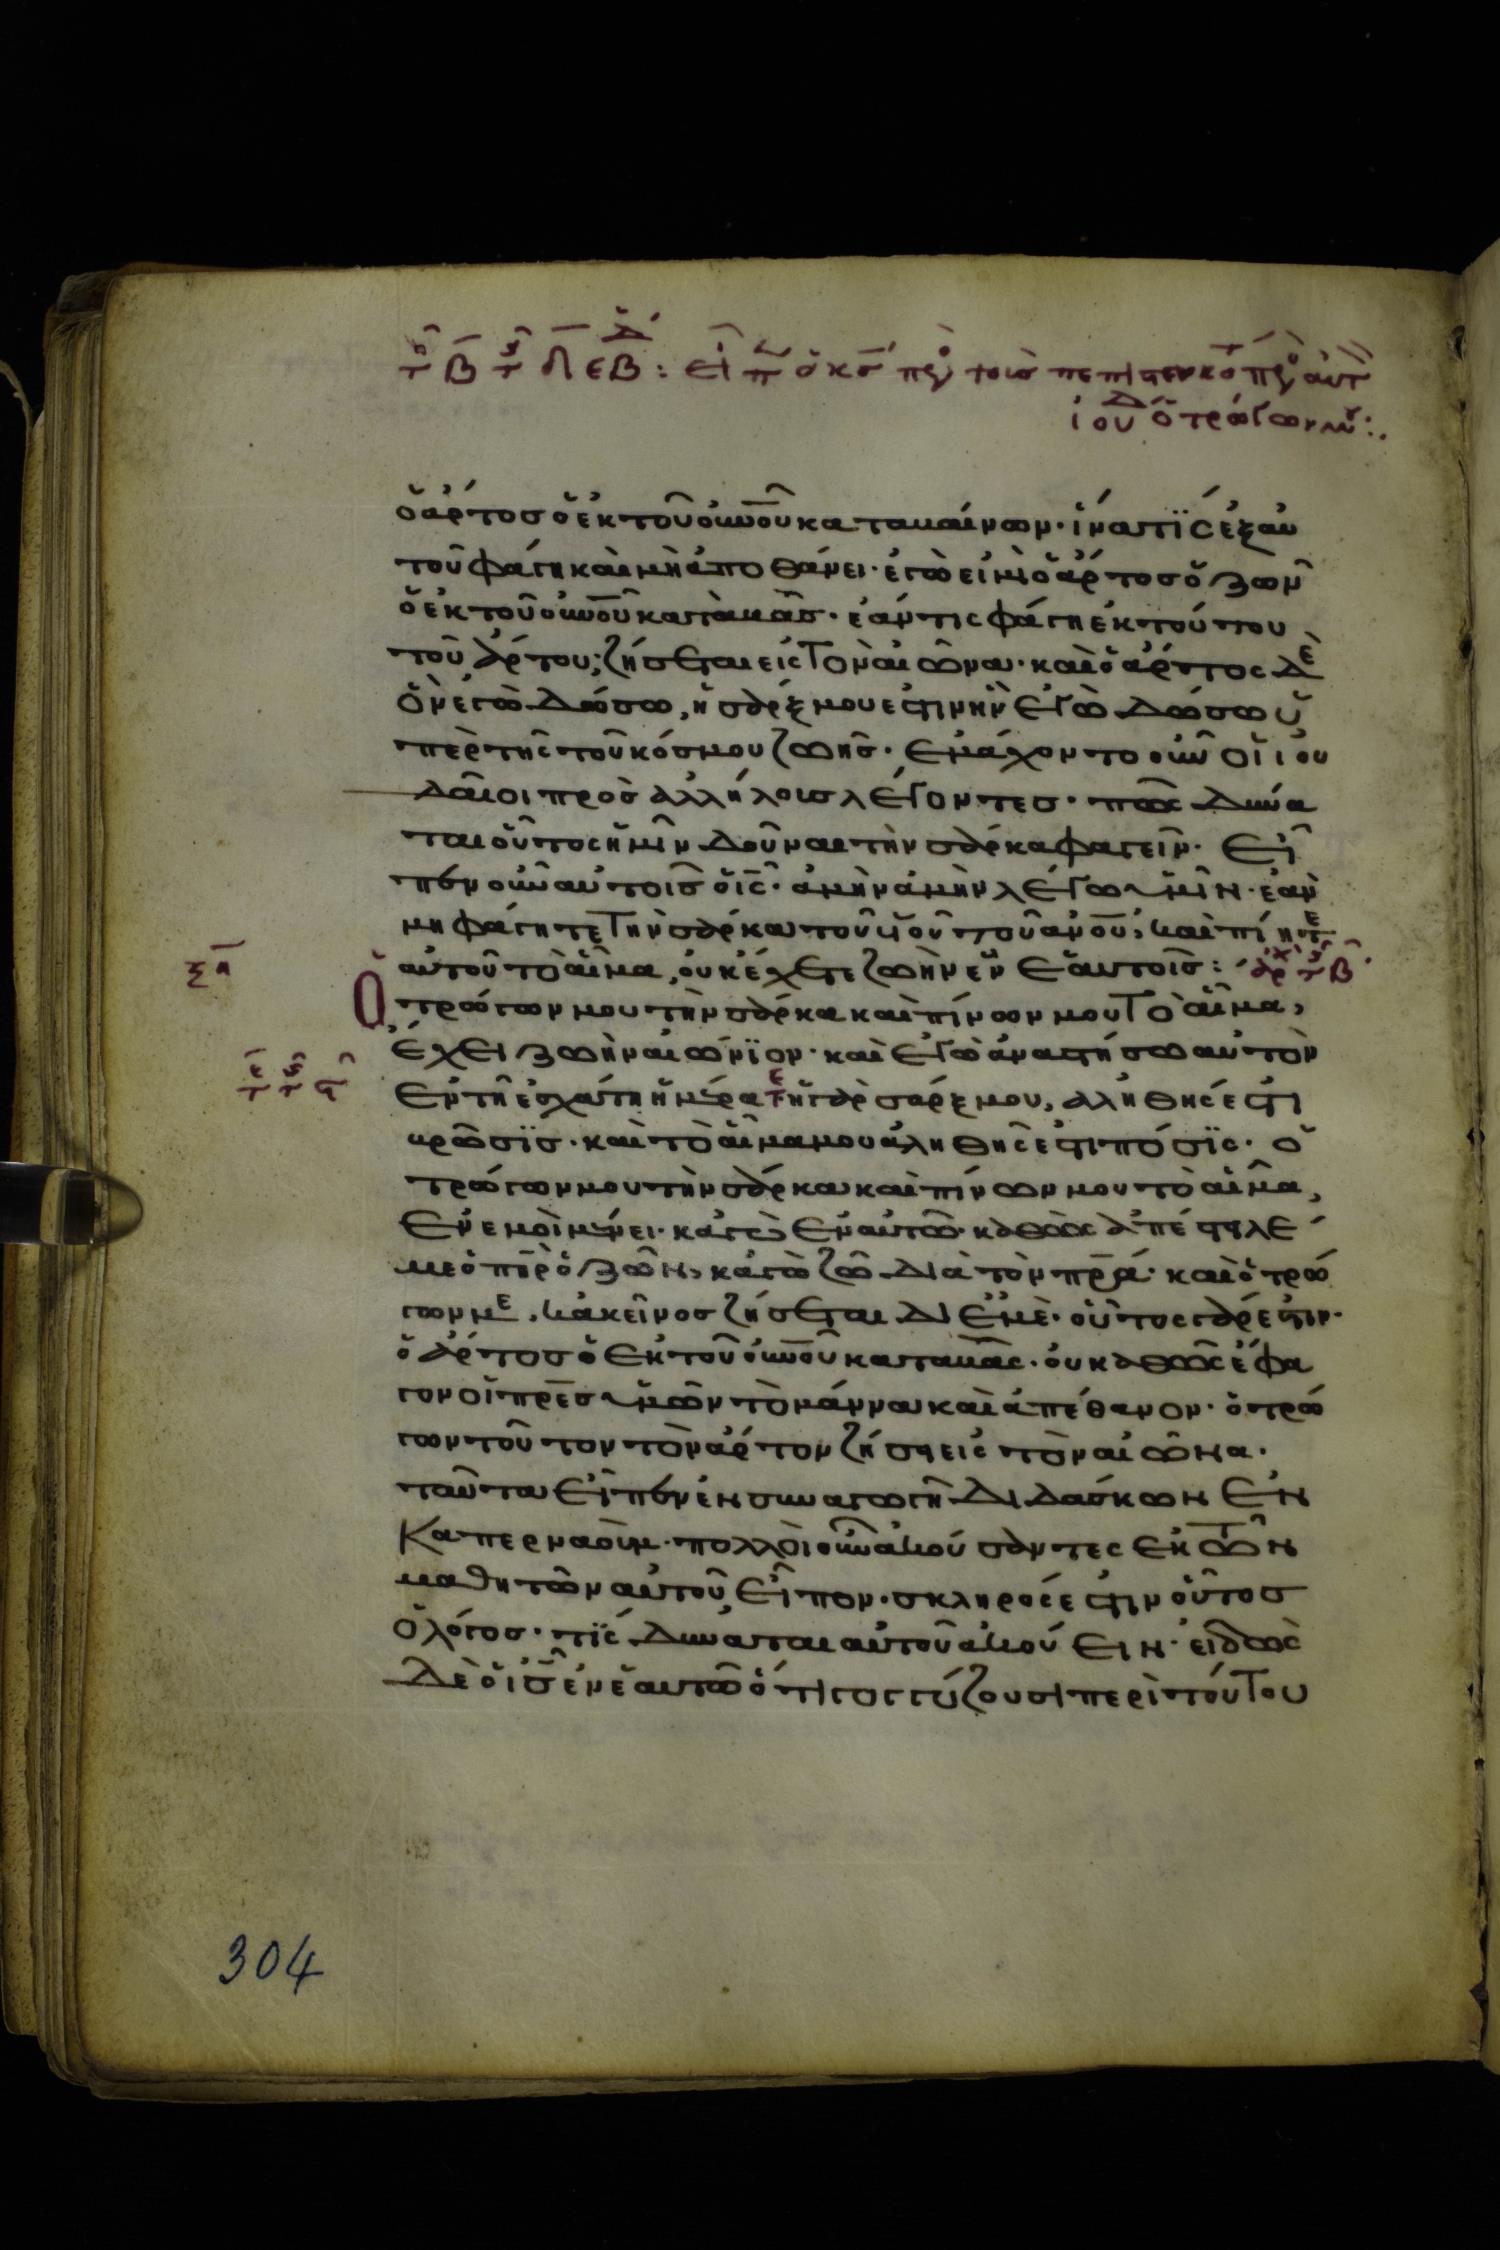 τῇ Β τῆς Ϛ ΕΒΔ: εἶπ ὁ κς πρὸ τοὺσ πεπιστευκό πρὸ αὐτ
ἰουδ ὁ τρώγων μου:.
ὁ ἄρτοσ ὁ ἐκ τοῦ οὐνοῦ καταβαίνων· ἵνα τϊς ἐξ αὐ
τοῦ φάγη καὶ μὴ ἀποθάνει· ἐγὼ εἰμὶ ὁ ἄρτοσ ὁ ζῶν
ὁ ἐκ τοῦ οὐνοῦ καταβὰσ· ἐάν τις φάγη ἐκ τούτου
τοῦ ἄρτου, ζήσεται εἰς τὸν αἰῶνα· καὶ ὁ ἄρτος δὲ
ὃν ἐγὼ δώσω, ἡ σάρξ μου ἐστιν ἣν ἐγὼ δώσω ὑ
πὲρ τῆς τοῦ κόσμου ζωῆσ· ἐμάχοντο οὖν οἱ ἰου
δαῖοι προσ ἀλλήλουσ λέγοντεσ· πῶς δύνα
ται οὗτος ἡμῖν δοῦναι τὴν σάρκα φαγεῖν· εἶ
πεν οὖν αὐτοῖσ ὁ ις· ἀμὴν ἀμὴν λέγω ὑμῖν· ἐὰν
μη φάγητε τὴν σάρκα τοῦ υἱοῦ τοῦ ἀνου, καὶ πίητε
αὐτοῦ τὸ αἷμα, οὐκ ἔχετε ζωὴν ἐν ἑαυτοῖσ: ἀρχ τῆς Β
ξη
Ὁ τρώγων μου τὴν σάρκα καὶ πίνων μου τὸ αἷμα,
ἔχει ζωὴν αἰώνϊον· καὶ ἐγὼ ἀναστήσω αὐτὸν
ἐν τῆ ἐσχάτη ἡμέρα τε ἡ γὰρ σάρξ μου, ἀληθής ἐστι
βρῶσϊσ· καὶ τὸ αἷμα μου ἀληθῆς ἐστι πόσϊς· ὁ
τρώγων μου τὴν σάρκα καὶ πίνων μου τὸ αἷμα,
ἐν ἐμοὶ μένει· κἀγὼ ἐν αὐτῶ· καθὼς ἀπέστειλέ
με ὁ πηρ ὁ ζῶν, κἀγὼ ζῶ διὰ τὸν πρα· καὶ ὁ τρώ
γων με, κἀκεῖνοσ ζήσεται δι ἐμὲ· οὗτος γάρ ἐστιν·
ὁ ἄρτοσ ὁ ἐκ τοῦ οὐνοῦ καταβὰς· οὐ καθὼς ἔφα
γον οἱ πρεσ ὑμῶν τὸ μάννα καὶ ἀπέθανον· ὁ τρώ
γων τοῦτον τὸν ἄρτον ζήσει εἰς τὸν αἰῶνα·
ταῦτα εἶπεν ἐν συναγωγῆ διδάσκων ἐν
Καπερναοὺμ· πολλοὶ οὖν ἀκούσαντες ἐκ τῶν
μαθητῶν αὐτοῦ εἶπον· σκληρός ἐστιν οὗτοσ
ὁ λόγοσ· τίς δύναται αὐτοῦ ἀκούειν· εἰδὼς
δὲ ὁ ισ ἐν ἑαυτῶ ὅτι γογγύζουσι περὶ τούτου
304